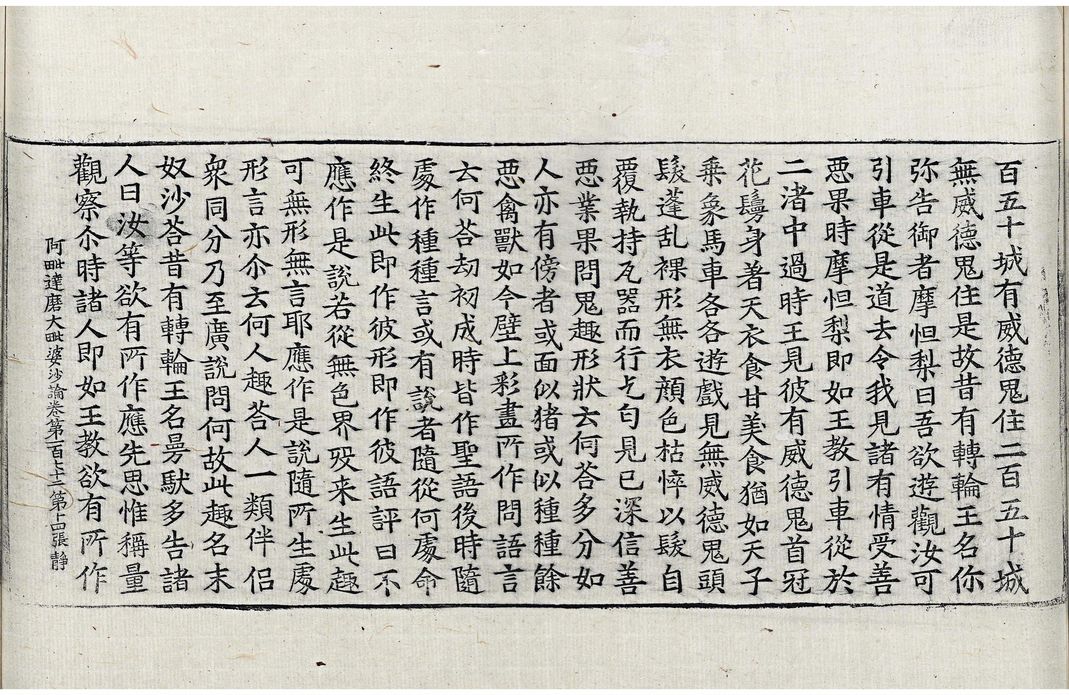 百五十城有威德鬼住二百五十城
無威德鬼住是故昔有轉輪王名你
弥告御者摩怛梨曰吾欲遊觀汝可
引車從是道去令我見諸有情受善
惡果時摩怛梨即如王教引車從於
二渚中過時王見彼有威德鬼首冠
花鬘身著天衣食甘美食猶如天子
乗象馬車各各遊戲見無威德鬼頭
髮蓬乱裸形無衣顔色枯悴以髮自
覆執持瓦器而行乞匃見已深信善
惡業果問鬼趣形狀云何荅多分如
人亦有傍者或面似猪或似種種餘
惡禽獸如今壁上彩畫所作問語言
云何荅劫初成時皆作聖語後時隨
處作種種言或有說者隨從何處命
終生此即作彼形即作彼語評曰不
應作是說若從無色界歿来生此趣
可無形無言耶應作是說隨所生處
形言亦尒云何人趣荅人一類伴侣
衆同分乃至廣說問何故此趣名末
奴沙荅昔有轉輪王名曼馱多告諸
人曰汝等欲有所作應先思惟稱量
觀察尒時諸人即如王教欲有所作
阿毗達磨大毗婆沙論卷第一百七十二 第十四張 静